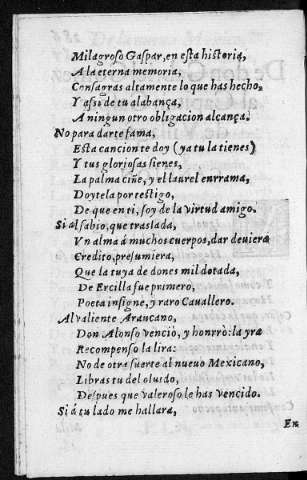 Milagroso Gaspar, en eſta hiſtoria,
A la eterna memoria,
Conſagras altamente lo que has hecho.
Y aſsi de tu alabança,
A ningun otro obligacion alcança.
No para darte fama,
Eſta cancion te doy (ya tu la tienes)
Y tus glorioſas ſienes,
La palma ciñe, y el laurel enrrama,
Doytela por teſtigo,
De que en ti, ſoy de la virtud amigo.
Si al ſabio, que traslada,
Vn alma á muchos cuerpos, dar deuiera
Credito, preſumiera,
Que la tuya de dones mil dotada,
De Ercilla fue primero,
Poeta inſigne, y raro Cauallero.
Al valiente Araucano,
Don Alonſo vencio, y honrrò: la yra
Recompenſo la lira:
No de otra ſuerte al nueuo Mexicano,
Libras tu del oluido,
Deſpues que valeroſo le has vencido.
Si á tu lado me hallara,
En